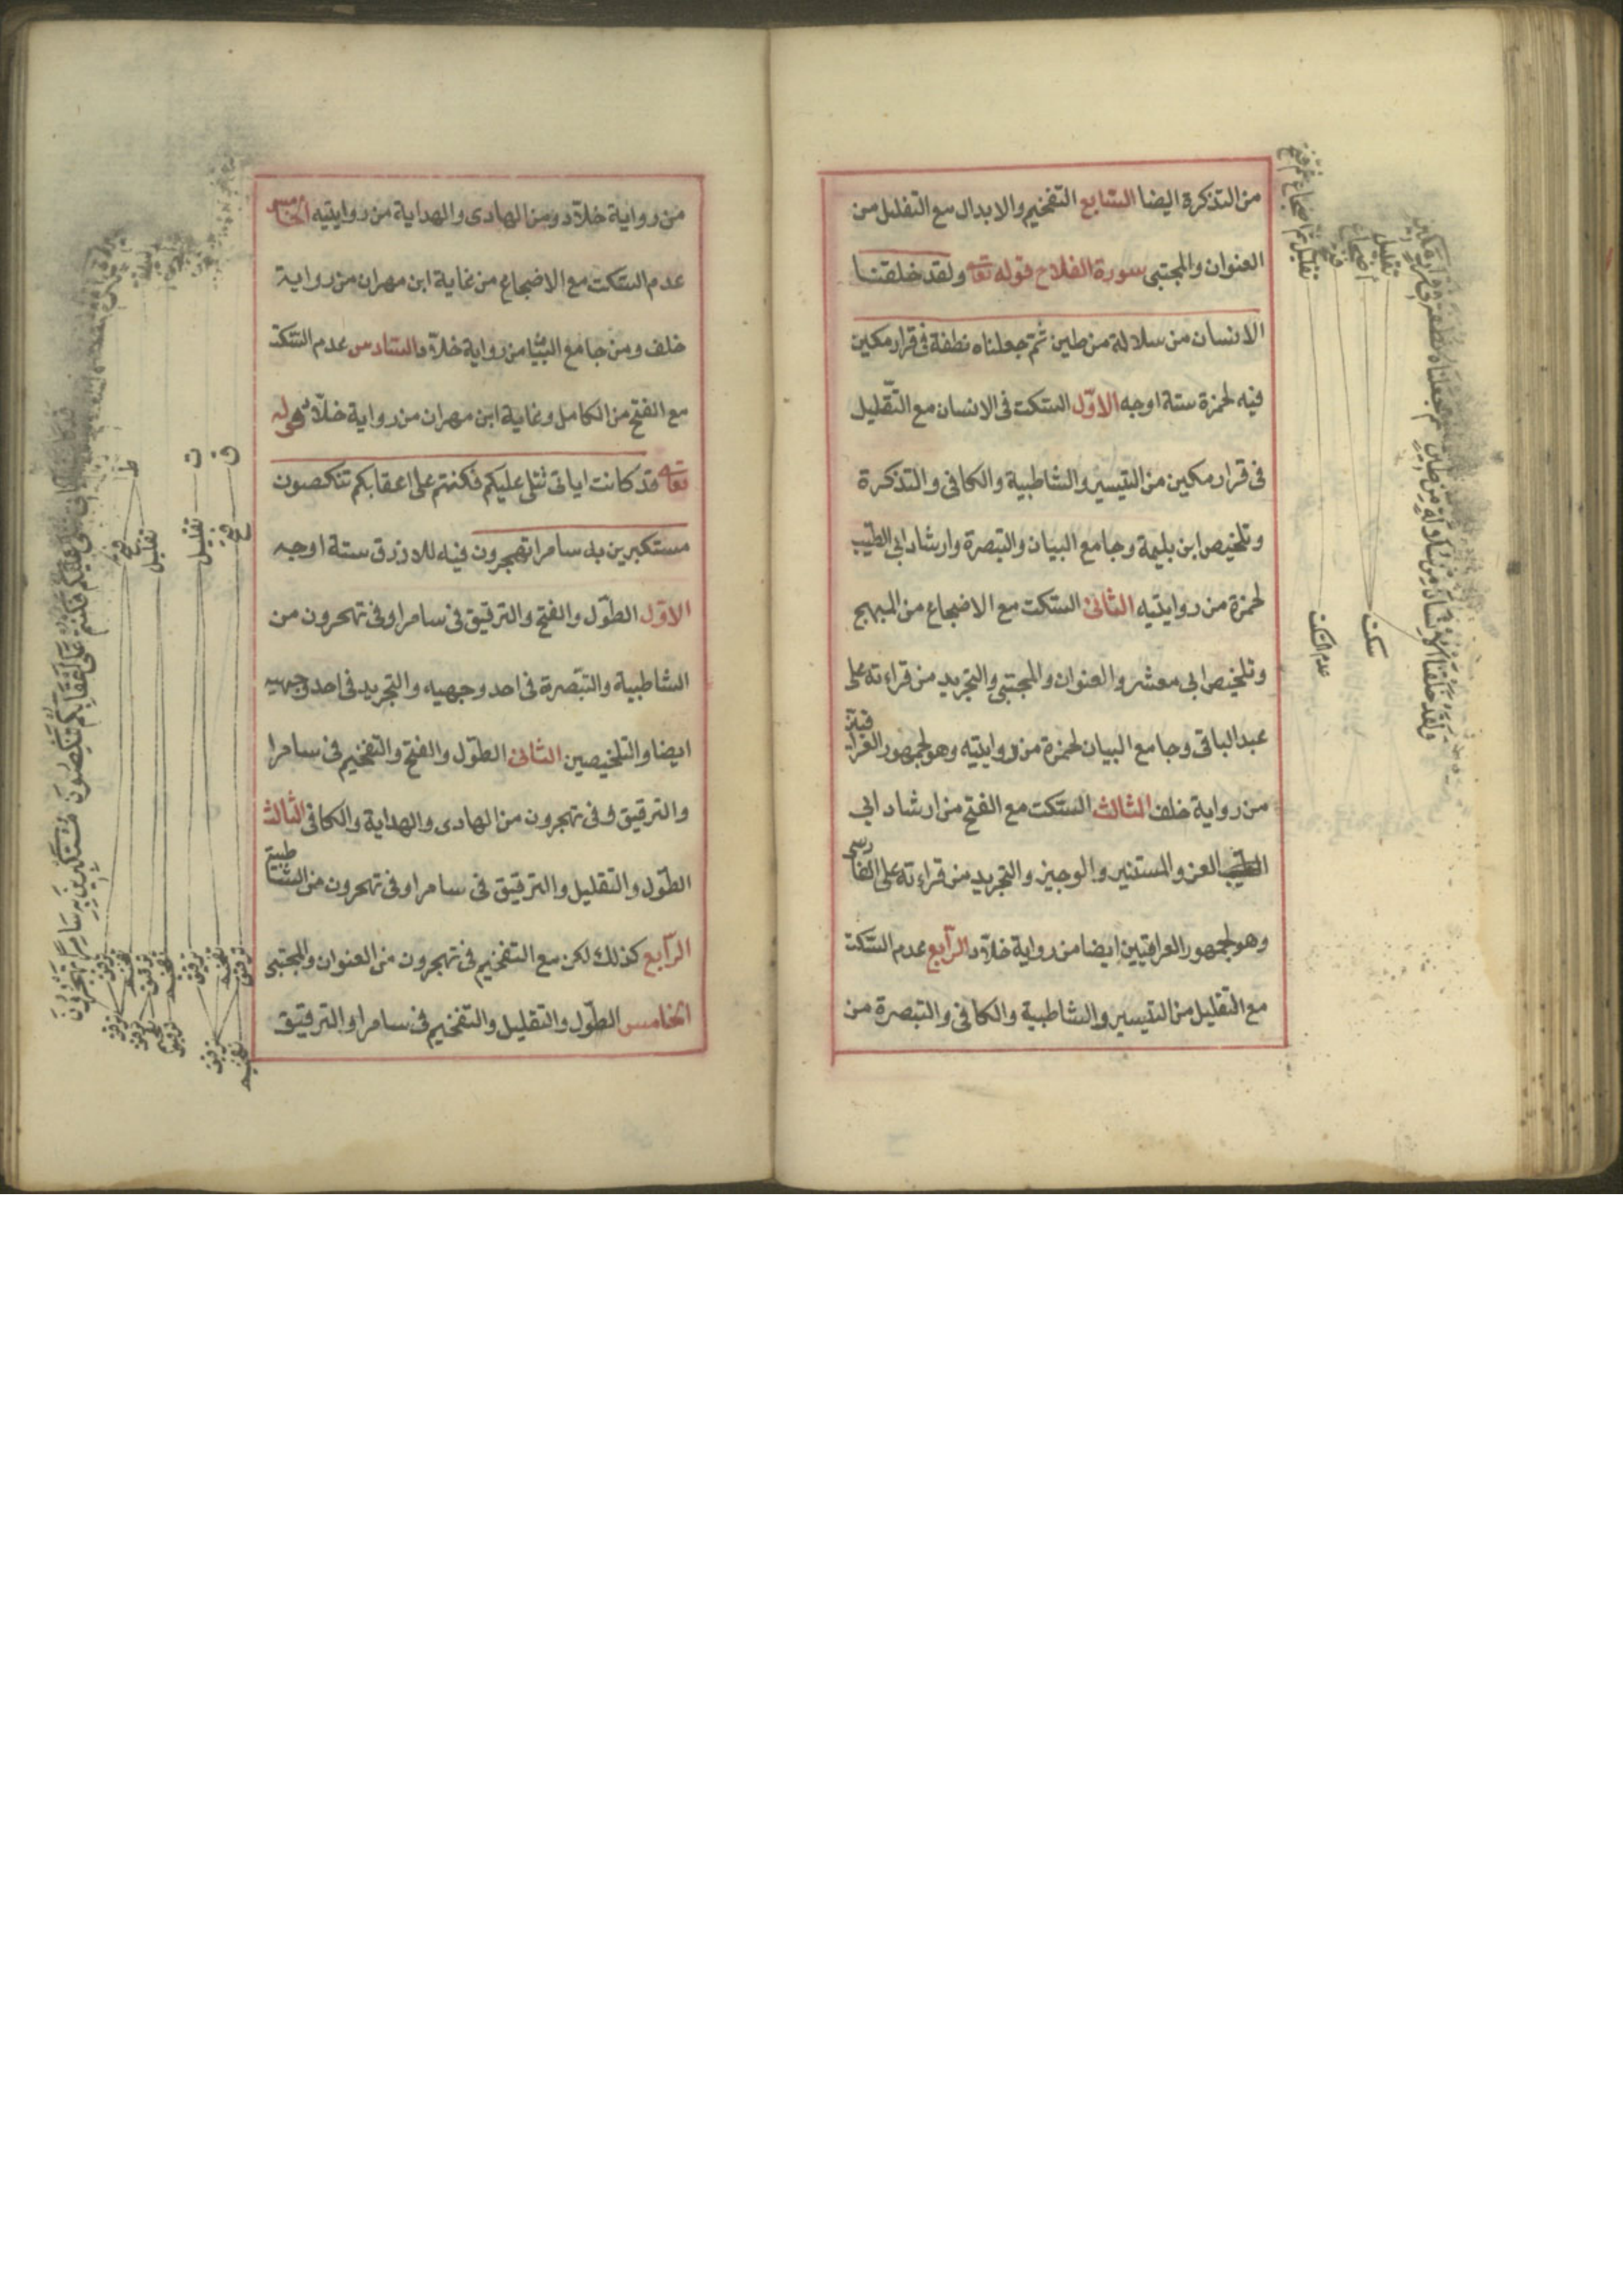 من التذكرة ايضا السابع التفخيم والابدال مع التقليل من
العنوان والمجتبى سورة الفلاح قوله تعا ولقد خلقنا
الانسان من سلالة من طين ثم جعلناه نطفة فى قرار مكين
فيه لحمزة ستة اوجه الاوّل السّكت فى الانسان مع التّقليل
فى قرار مكين من التيسير والشاطبية والكافى والتذكرة
وتلخيص ابن بليمة وجامع البيان والتبصرة وارشاد ابى الطيّب
لحمزة من روايتيه الثانى السّكت مع الاضجاع من المبهج
وتلخيص ابى معشر والعنوان والمجتبى والتجريد من قراءته على
عبد الباقى وجامع البيان لحمزة من روايتيه وهو لجمهور العراقيّن
من رواية خلف الثالث السّكت مع الفتح من ارشاد ابى
العز والمستنير والوجيز والتجريد من قراءته على الفارسى
وهو لجمهور العراقيين ايضا من رواية خلّاد الرّابع عدم السّكت
مع التّقليل من التيسير والشاطبية والكافى والتبصرة من
تقليل
اضجاع
فتح
سكت
عدم السّكت
ولقد خلقنا الانسان من سلالة من طين ثم جعلناه نطفة فى قرار مكين
من رواية خلّاد ومن الهادى والهداية من روايتيه الخامس
عدم السّكت مع الاضجاع من غاية ابن مهران من رواية
خلف ومن جامع البيان من رواية خلّاد السّادس عدم السّكت
مع الفتح من الكامل وغاية ابن مهران من رواية خلّاد قوله
تعا قد كانت اياتى تتلى عليكم فكنتم على اعقابكم تنكصون
مستكبرين به سامرا تهجرون فيه للازرق ستة اوجه
الاوّل الطّول والفتح والترقيق فى سامرا وفى تهجرون من
الشاطبية والتّبصرة فى احد وجهيه والتجريد فى احد وجهيه
ايضا والتلخيصين الثانى الطّول والفتح والتفخيم فى سامرا
والترقيق وفى تهجرون من الهادى والهداية والكافى الثالث
الطّول والتقليل والترقيق فى سامرا وفى تهجرون من الشّاطبية
الرّابع كذلك لكن مع التفخيم فى تهجرون من العنوان والمجتبى
الخامس الطّول والتقليل والتفخيم فى سامرا والترقيق
ق
ت
ط
فتح
تقليل
فتح
تقليل
على اعقابكم تنكصون مستكبرين به سامرا تهجرون